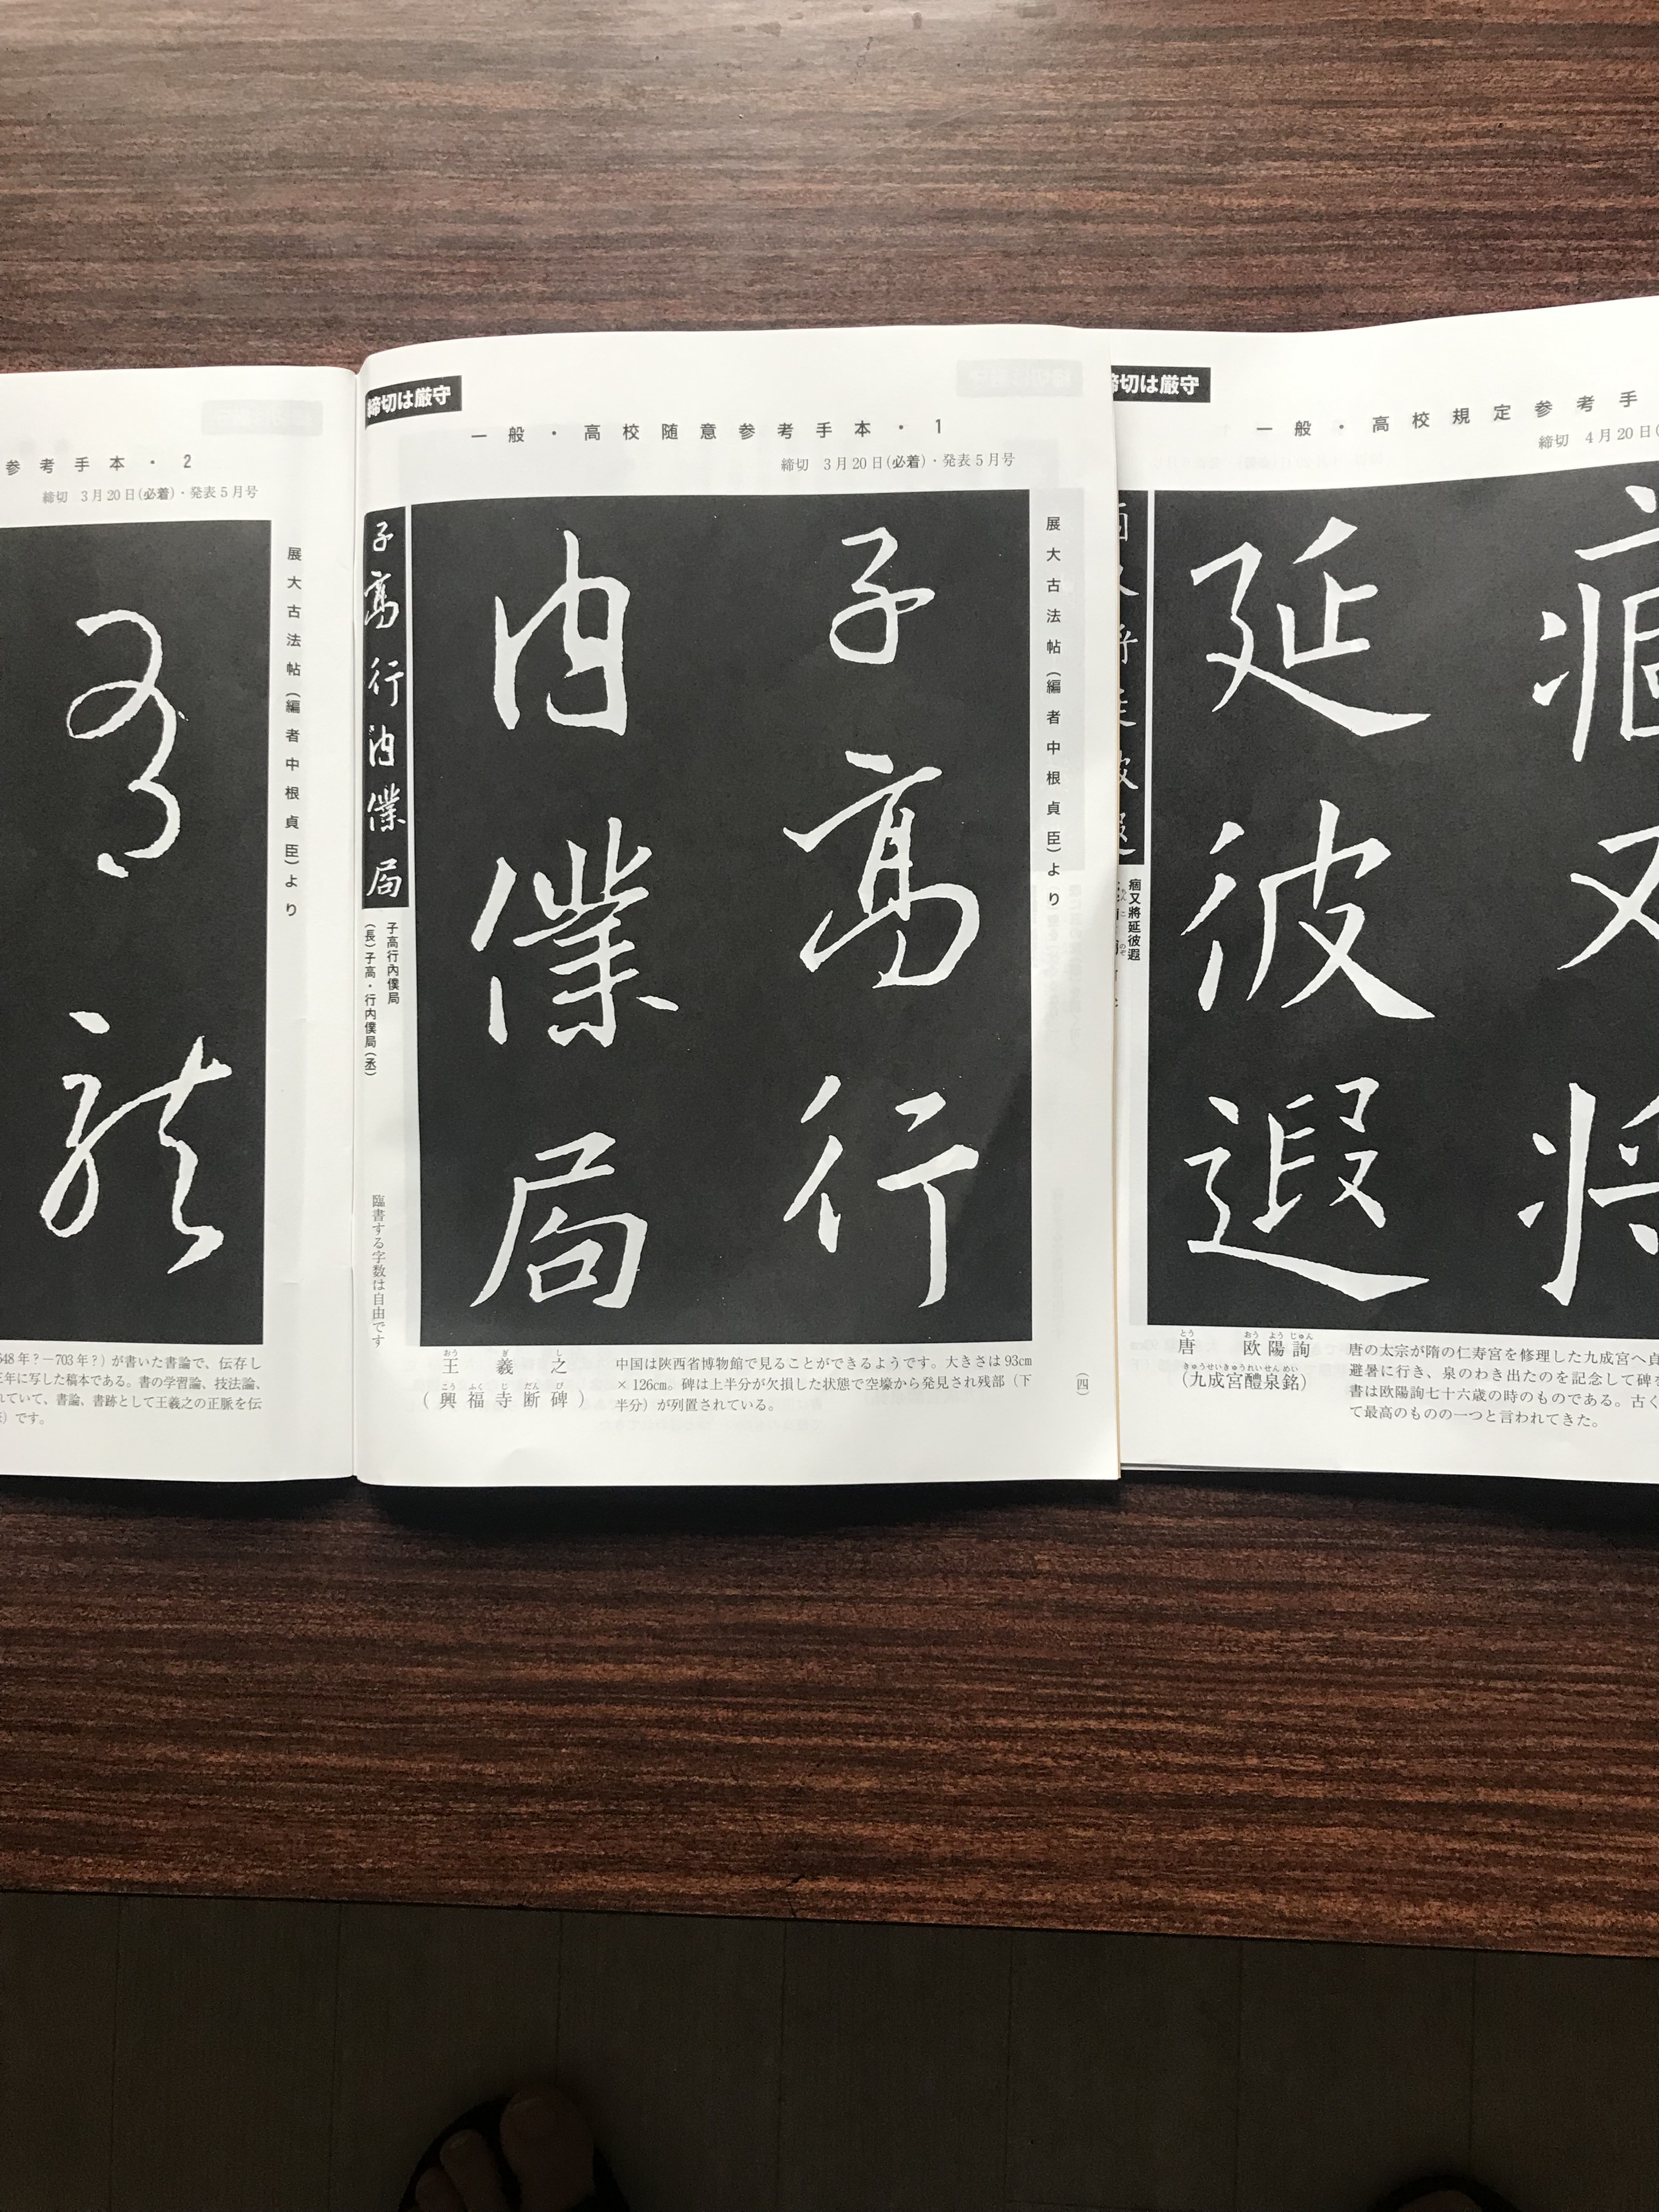 参考手本・2
締切 3月20日(必着)・発表5月号
展大古法帖(編者中根貞臣)より
48年?—703年?)が書いた書論で、伝存し
年に写した稿本である。書の学習論、技法論、
れていて、書論、書跡として王羲之の正脈を伝
です。
締切は厳守
一般・高校随意参考手本・1
締切 3月20日(必着)・発表5月号
展大古法帖(編者中根貞臣)より
子高行
内僕局
子高行内僕局
子高行內僕局
(長)子高・行内僕局(丞)
臨書する字数は自由です
王羲之
おう ぎ し
(興福寺断碑)
こう ふく じ だん ぴ
中国は陝西省博物館で見ることができるようです。大きさは93cm
×126cm。碑は上半分が欠損した状態で空壕から発見され残部(下
半分)が列置されている。
(四)
締切は厳守
一般・高校規定参考手
締切 4月20日(
痼又将
延彼遐
痼又將延彼遐
唐 欧陽詢
とう おう よう じゅん
(九成宮醴泉銘)
きゅうせいきゅうれいせんめい
唐の太宗が隋の仁寿宮を修理した九成宮へ貞
避暑に行き、泉のわき出たのを記念して碑を
書は欧陽詢七十六歳の時のものである。古く
て最高のものの一つと言われてきた。